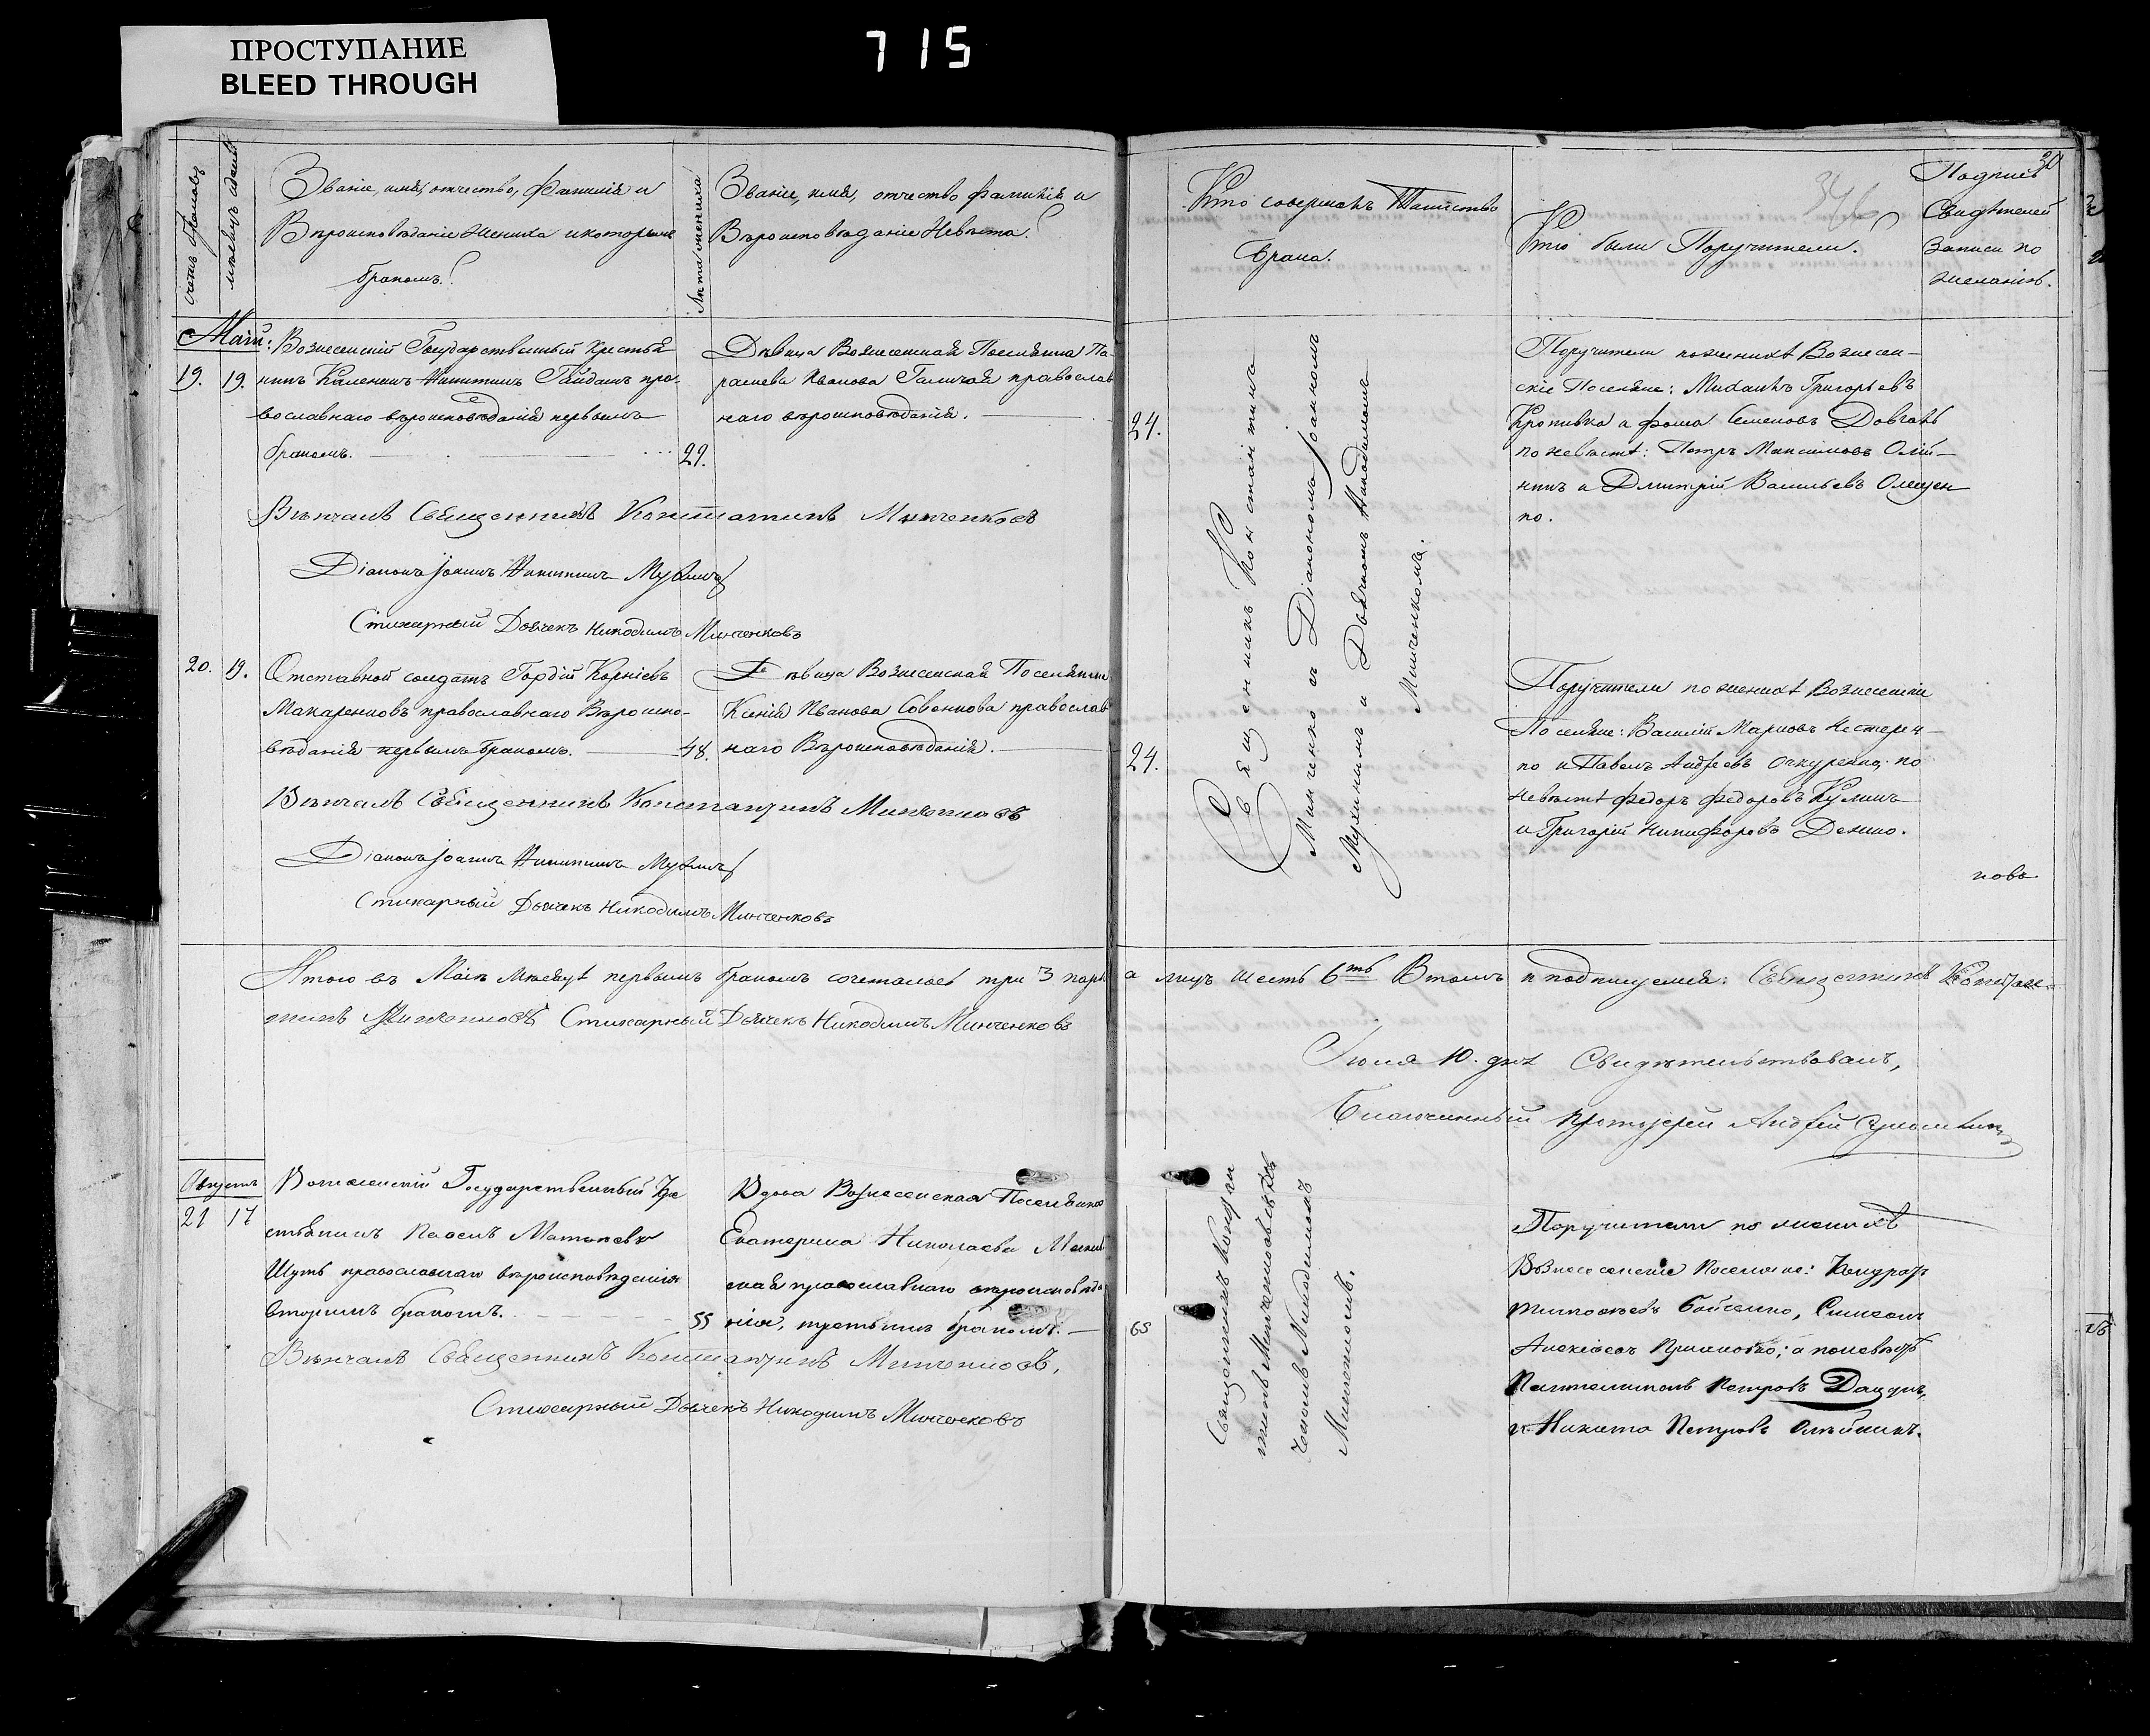 ПРОСТУПАНИЕ
BLEED THROUGH
715
30
346
Счетъ браковъ
мѣсяцъ и день
Званіе, имя, отчество, фамилія и
Вѣроисповѣданіе Жениха и которымъ
бракомъ?
Лѣта жениха
Званіе, имя, отчество фамилія и
Вѣроисповѣданіе Невѣсты?
Маій:
19. 19.
Вознесенскій Государственный Крестья
нинъ Каленикъ Никитинъ Гайдашъ пра-
вославнаго вѣроисповѣданія первымъ
бракомъ. 29.
Дѣвица Вознесенская Поселянка Па-
раскева Иванова православ
наго вѣроисповѣданія.
Вѣнчалъ Священникъ Константинъ Минченковъ
Діаконъ Іоаннъ Никитинъ Мухинъ
Стихарный Дьячекъ Никодимъ Минченковъ
20. 19.
Отставной солдатъ Гордій Корніевъ
Макаренковъ православнаго Вѣроиспо-
вѣданія первымъ бракомъ. 48.
Дѣвица Вознесенская Поселянка
Ксенія Иванова Совенкова православ
наго Вѣроисповѣданія.
Вѣнчалъ Священникъ Константинъ Минченковъ
Діаконъ Іоаннъ Никитинъ Мухинъ
Стихарный Дьячекъ Никодимъ Минченковъ
Итого въ Маіѣ мѣсяцѣ первымъ бракомъ сочеталось три 3 пары
тинъ Минченковъ Стихарный Дьячекъ Никодимъ Минченковъ
Августъ
21 17
Вознесенскій Государственный Кре
стьянинъ Павелъ Матвѣевъ
Шуть православнаго вѣроисповѣданія
вторымъ бракомъ. 55
Вдова Вознесенская Поселянка
Екатерина Николаева
ская православнаго вѣроисповѣда
нія, третьимъ бракомъ.
Вѣнчалъ Священникъ Константинъ Минченковъ,
Стихарный Дьячекъ Никодимъ Минченковъ
Кто совершалъ Таинство
брака.
Кто были Поручители?
Подпись
Свидѣтелей
записи по
желанію.
24.
24.
Священникъ Константинъ
Минченко съ Діакономъ Іоанномъ
Мухинымъ и Дьячкомъ Никодимомъ
Минченкомъ.
Поручители по женихѣ Вознесен-
скіе Поселяне: Михаилъ Григорьевъ
Кропивка и Фома Семеновъ Довгань
по невѣстѣ: Петръ Максимовъ Олій-
никъ и Дмитрій Васильевъ Олещен
ко.
Поручители по женихѣ Вознесенскіе
Поселяне: Василій Марковъ Нестерен-
ко и Павелъ Андреевъ Очкуренко, по
невѣстѣ Федоръ Федоровъ Куликъ
и Григорій Никифоровъ Демко.
ковъ
а лицъ шесть 6ть Въ томъ и подписуемся: Священникъ Констан-
Іюля 10. дня Свидѣтельствовалъ,
Благочинный Протоіерей Андрей
65
Священникъ Констан
тинъ Минченковъ съ Дья
чкомъ Никодимомъ
Минченкомъ.
Поручители по женихѣ
Вознесенскіе Поселяне: Кондратъ
Тимофѣевъ Бойченко, Симеонъ
Алексѣевъ; а по невѣстѣ
Пантелимонъ Петровъ Дацукъ,
и Никита Петровъ Олѣйникъ.